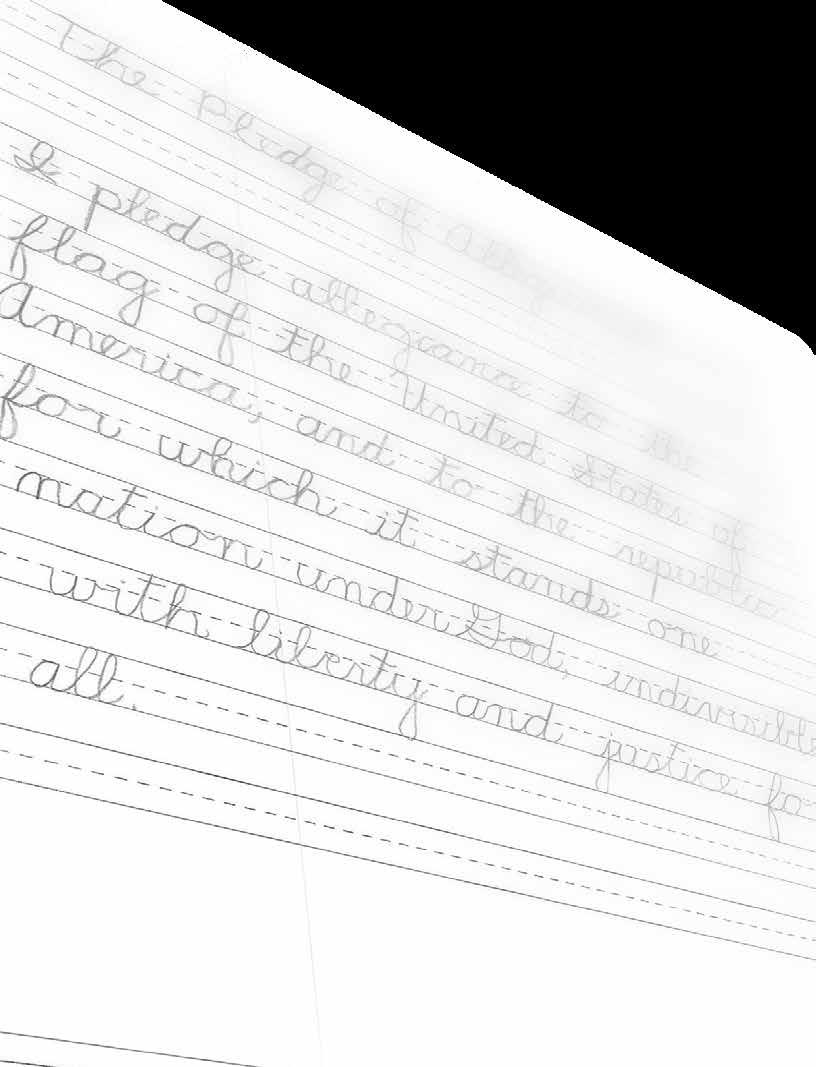 The Pledge of Allegiance
I pledge allegiance to the
flag of the United States of
America, and to the republic
for which it stands one
nation under God, indivisible
with liberty and justice for
all.